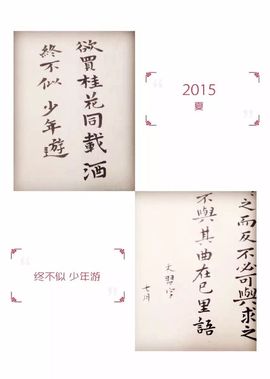 欲買桂花同載酒
終不似 少年遊
2015
夏
终不似 少年游
之而反不必可與求之
不與其曲在已里語
習字
七月